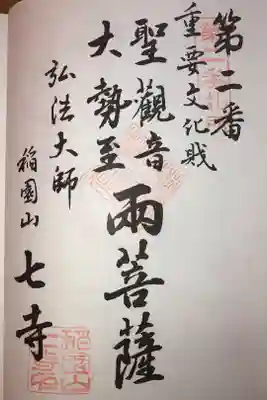 第二番
重要文化財
聖觀音
大勢至
兩菩薩
弘法大師
稲園山 七寺